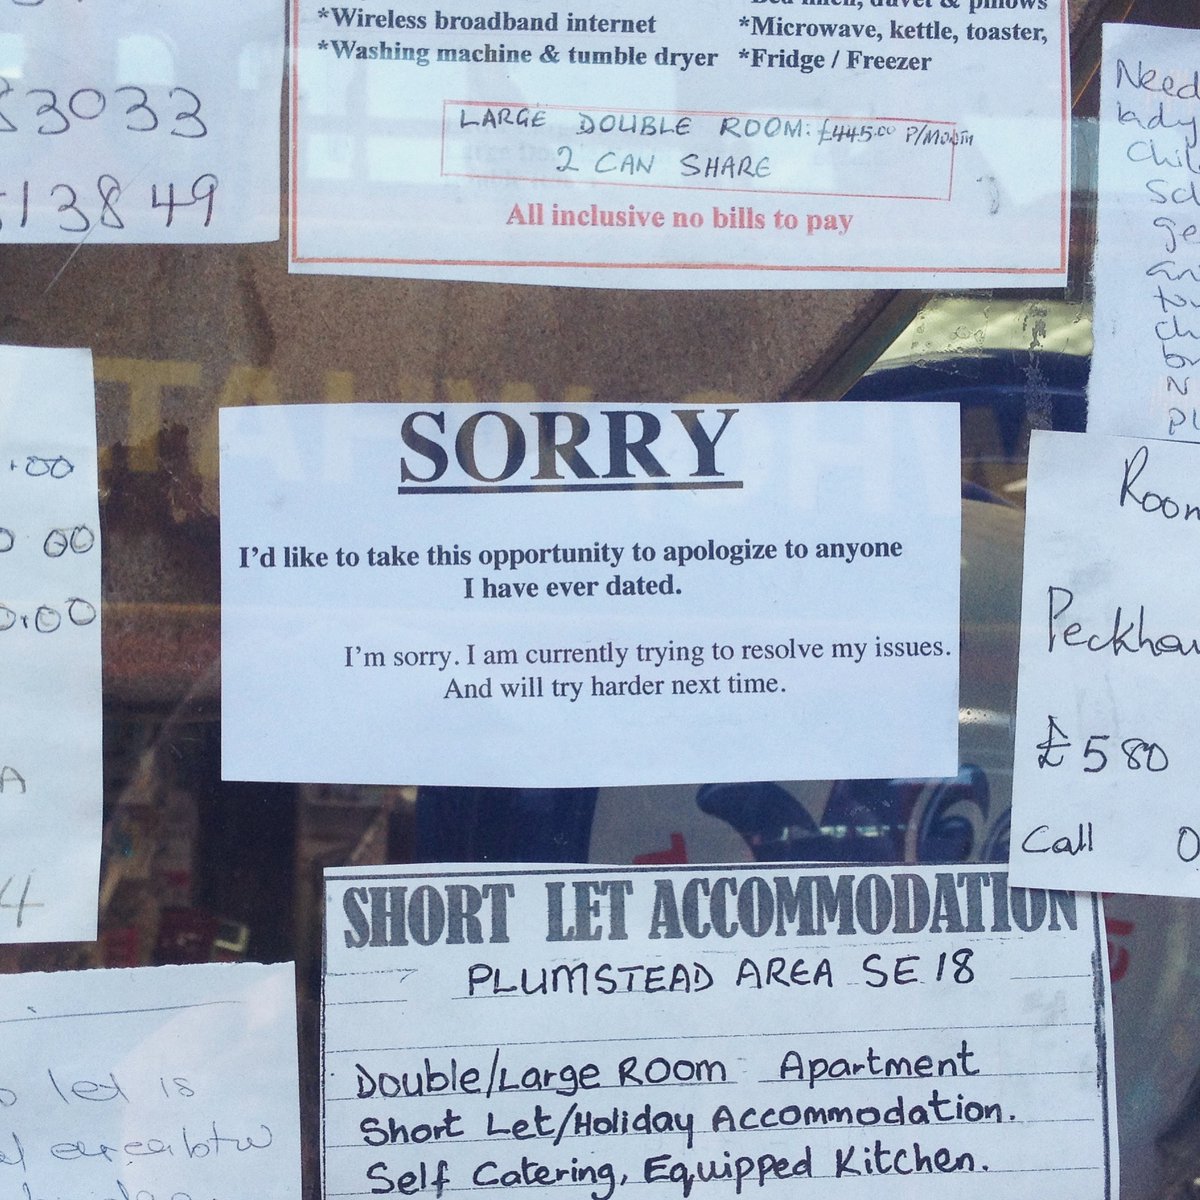 *Wireless broadband internet
*Washing machine & tumble dryer
*Microwave, kettle, toaster,
*Fridge / Freezer
LARGE DOUBLE ROOM: £445.00 P/MONTH
2 CAN SHARE
All inclusive no bills to pay
3033
13849
Need
lady
.00
00
0.00
A
4
SORRY
I'd like to take this opportunity to apologize to anyone
I have ever dated.
I'm sorry. I am currently trying to resolve my issues.
And will try harder next time.
Room
£580
Call 0
SHORT LET ACCOMMODATION
PLUMSTEAD AREA SE18
Double/Large Room Apartment
Short Let/Holiday Accommodation.
Self Catering, Equipped Kitchen.
let is
area btw